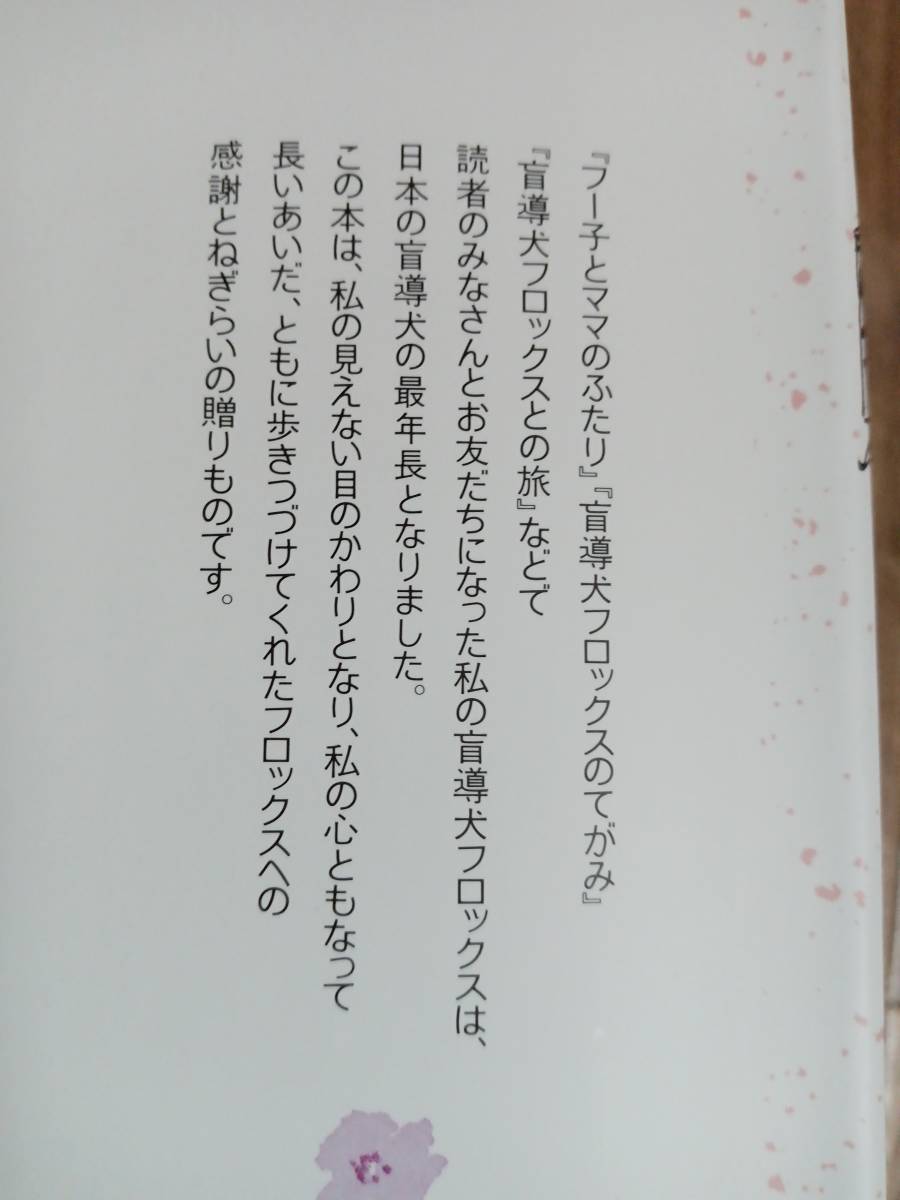 『フー子とママのふたり』『盲導犬フロックスのてがみ』
『盲導犬フロックスとの旅』などで
読者のみなさんとお友だちになった私の盲導犬フロックスは、
日本の盲導犬の最年長となりました。
この本は、私の見えない目のかわりとなり、私の心ともなって
長いあいだ、ともに歩きつづけてくれたフロックスへの
感謝とねぎらいの贈りものです。